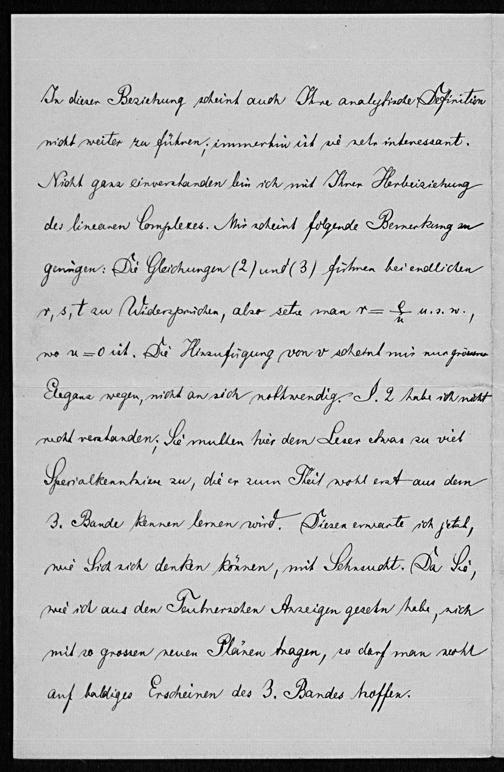 In dieser Beziehung scheint auch Ihre analytische Definition
nicht weiter zu führen; immerhin ist sie sehr interessant.
Nicht ganz einverstanden bin ich mit Ihrer Herbeiziehung
des linearen Complexes. Mir scheint folgende Bemerkung zu
genügen: Die Gleichungen (2) und (3) führen bei endlichen
r, s, t zu Widersprüchen, also setze man r = ρ/u u.s.w.,
wo u = 0 ist. Die Hinzufügung von v scheint mir nur grösserer
Eleganz wegen, nicht an sich nothwendig. S. 2 habe ich nicht
recht verstanden; Sie muthen hier dem Leser etwas zu viel
Specialkenntnisse zu, die er zum Theil wohl erst aus dem
3. Bande kennen lernen wird. Diesen erwarte ich jetzt,
wie Sie sich denken können, mit Sehnsucht. Da Sie,
wie ich aus den Teubnerschen Anzeigen gesehn habe, sich
mit so grossen neuen Plänen tragen, so darf man wohl
auf baldiges Erscheinen des 3. Bandes hoffen.